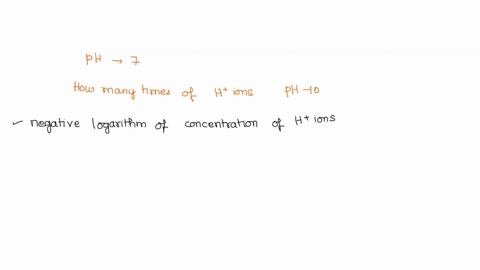 pH → 7
How many times of H⁺ ions pH → 10
✓ negative logarithm of concentration of H⁺ ions